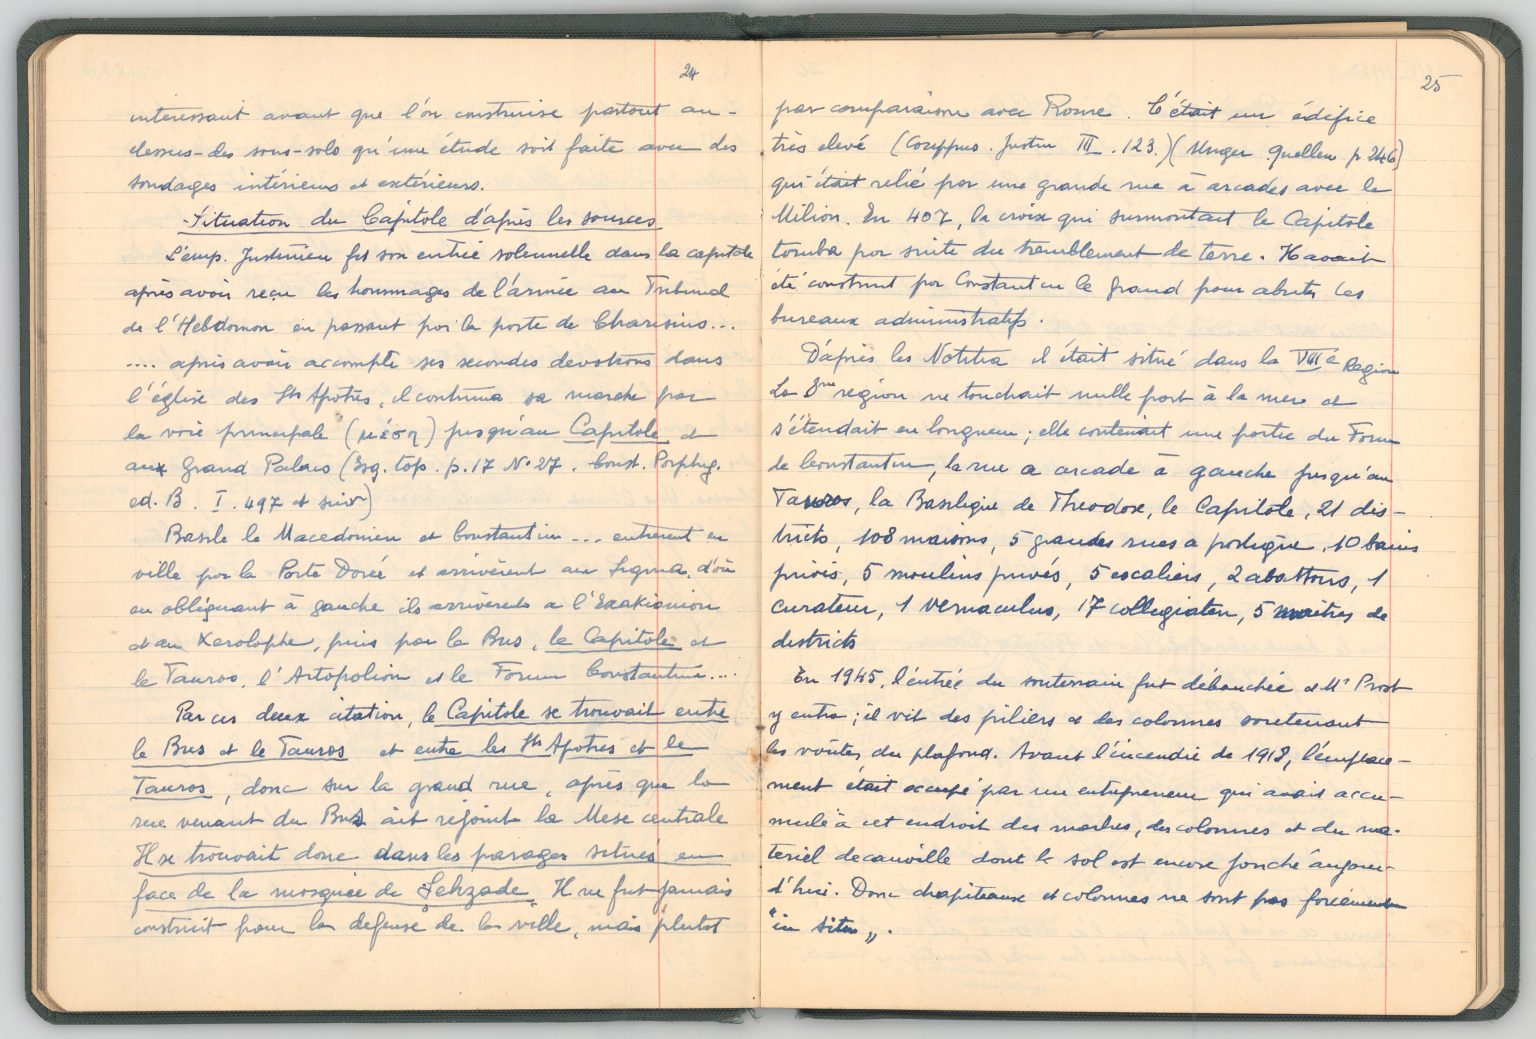 24
intéressant avant que l'on construise partout au-
dessus des sous-sols qu'une étude soit faite avec des
sondages intérieurs et extérieurs.
Situation du Capitole d'après les sources
L'emp. Justinien fit son entrée solennelle dans la capitale
après avoir reçu les hommages de l'armée au Tribunal
de l'Hebdomon en passant par la porte de Charisius...
.... après avoir accompli ses secondes devotions dans
l'église des Sts Apotres, il continua sa marche par
la voie principale (μέση) jusqu'au Capitole et
aux Grand Palais (Esq. top. p. 17 N° 27. Const. Porphyg.
ed. B. I. 497 et suiv)
Basile le Macedonien et Constantin ... entrerent en
ville par la Porte Dorée et arrivèrent au Sigma, d'où
en obliquant à gauche ils arrivèrent a l'Exakionion
et au Xerolophe, puis par le Bus, le Capitole et
le Tauros, l'Artopolion et le Forum Constantin...
Par ces deux citation, le Capitole se trouvait entre
le Bus et le Tauros et entre les Sts Apotres et le
Tauros, donc sur la grand rue, après que la
rue venant du Bus ait rejoint la Mese centrale
Il se trouvait donc dans les parages situés en
face de la mosquée de Şehzade. Il ne fut jamais
construit pour la defense de la ville, mais plutot
25
par comparaison avec Rome. C'était un édifice
très elevé (Corippus. Justin III. 123.) (Unger Quellen p 246)
qui était relié par une grande rue à arcades avec le
Milion. En 407, la croix qui surmontait le Capitole
tomba par suite du tremblement de terre. Il avait
été construit par Constantin le Grand pour abriter les
bureaux administratifs.
D'après les Notitia il était situé dans la VIIIe Region
La 8me region ne touchait nulle part à la mer et
s'étendait en longueur; elle contenait une partie du Forum
de Constantin, la rue a arcade à gauche jusqu'au
Tauros, la Basilique de Theodose, le Capitole, 21 dis-
tricts, 108 maisons, 5 grandes rues a portique, 10 bains
privés, 5 moulins privés, 5 escaliers, 2 abattoirs, 1
curateur, 1 vernaculus, 17 collegiaten, 5 maitres de
districts
En 1945, l'entrée du souterrain fut débouchée et Mr Prost
y entra; il vit des piliers et des colonnes soutenant
les voûtes du plafond. Avant l'incendie de 1918, l'emplace-
ment était occupé par un entrepreneur qui avait accu-
mulé à cet endroit des marbres, des colonnes et du ma-
teriel decauville dont le sol est encore jonché aujour-
d'hui. Donc chapiteaux et colonnes ne sont pas forcément
"in situ".